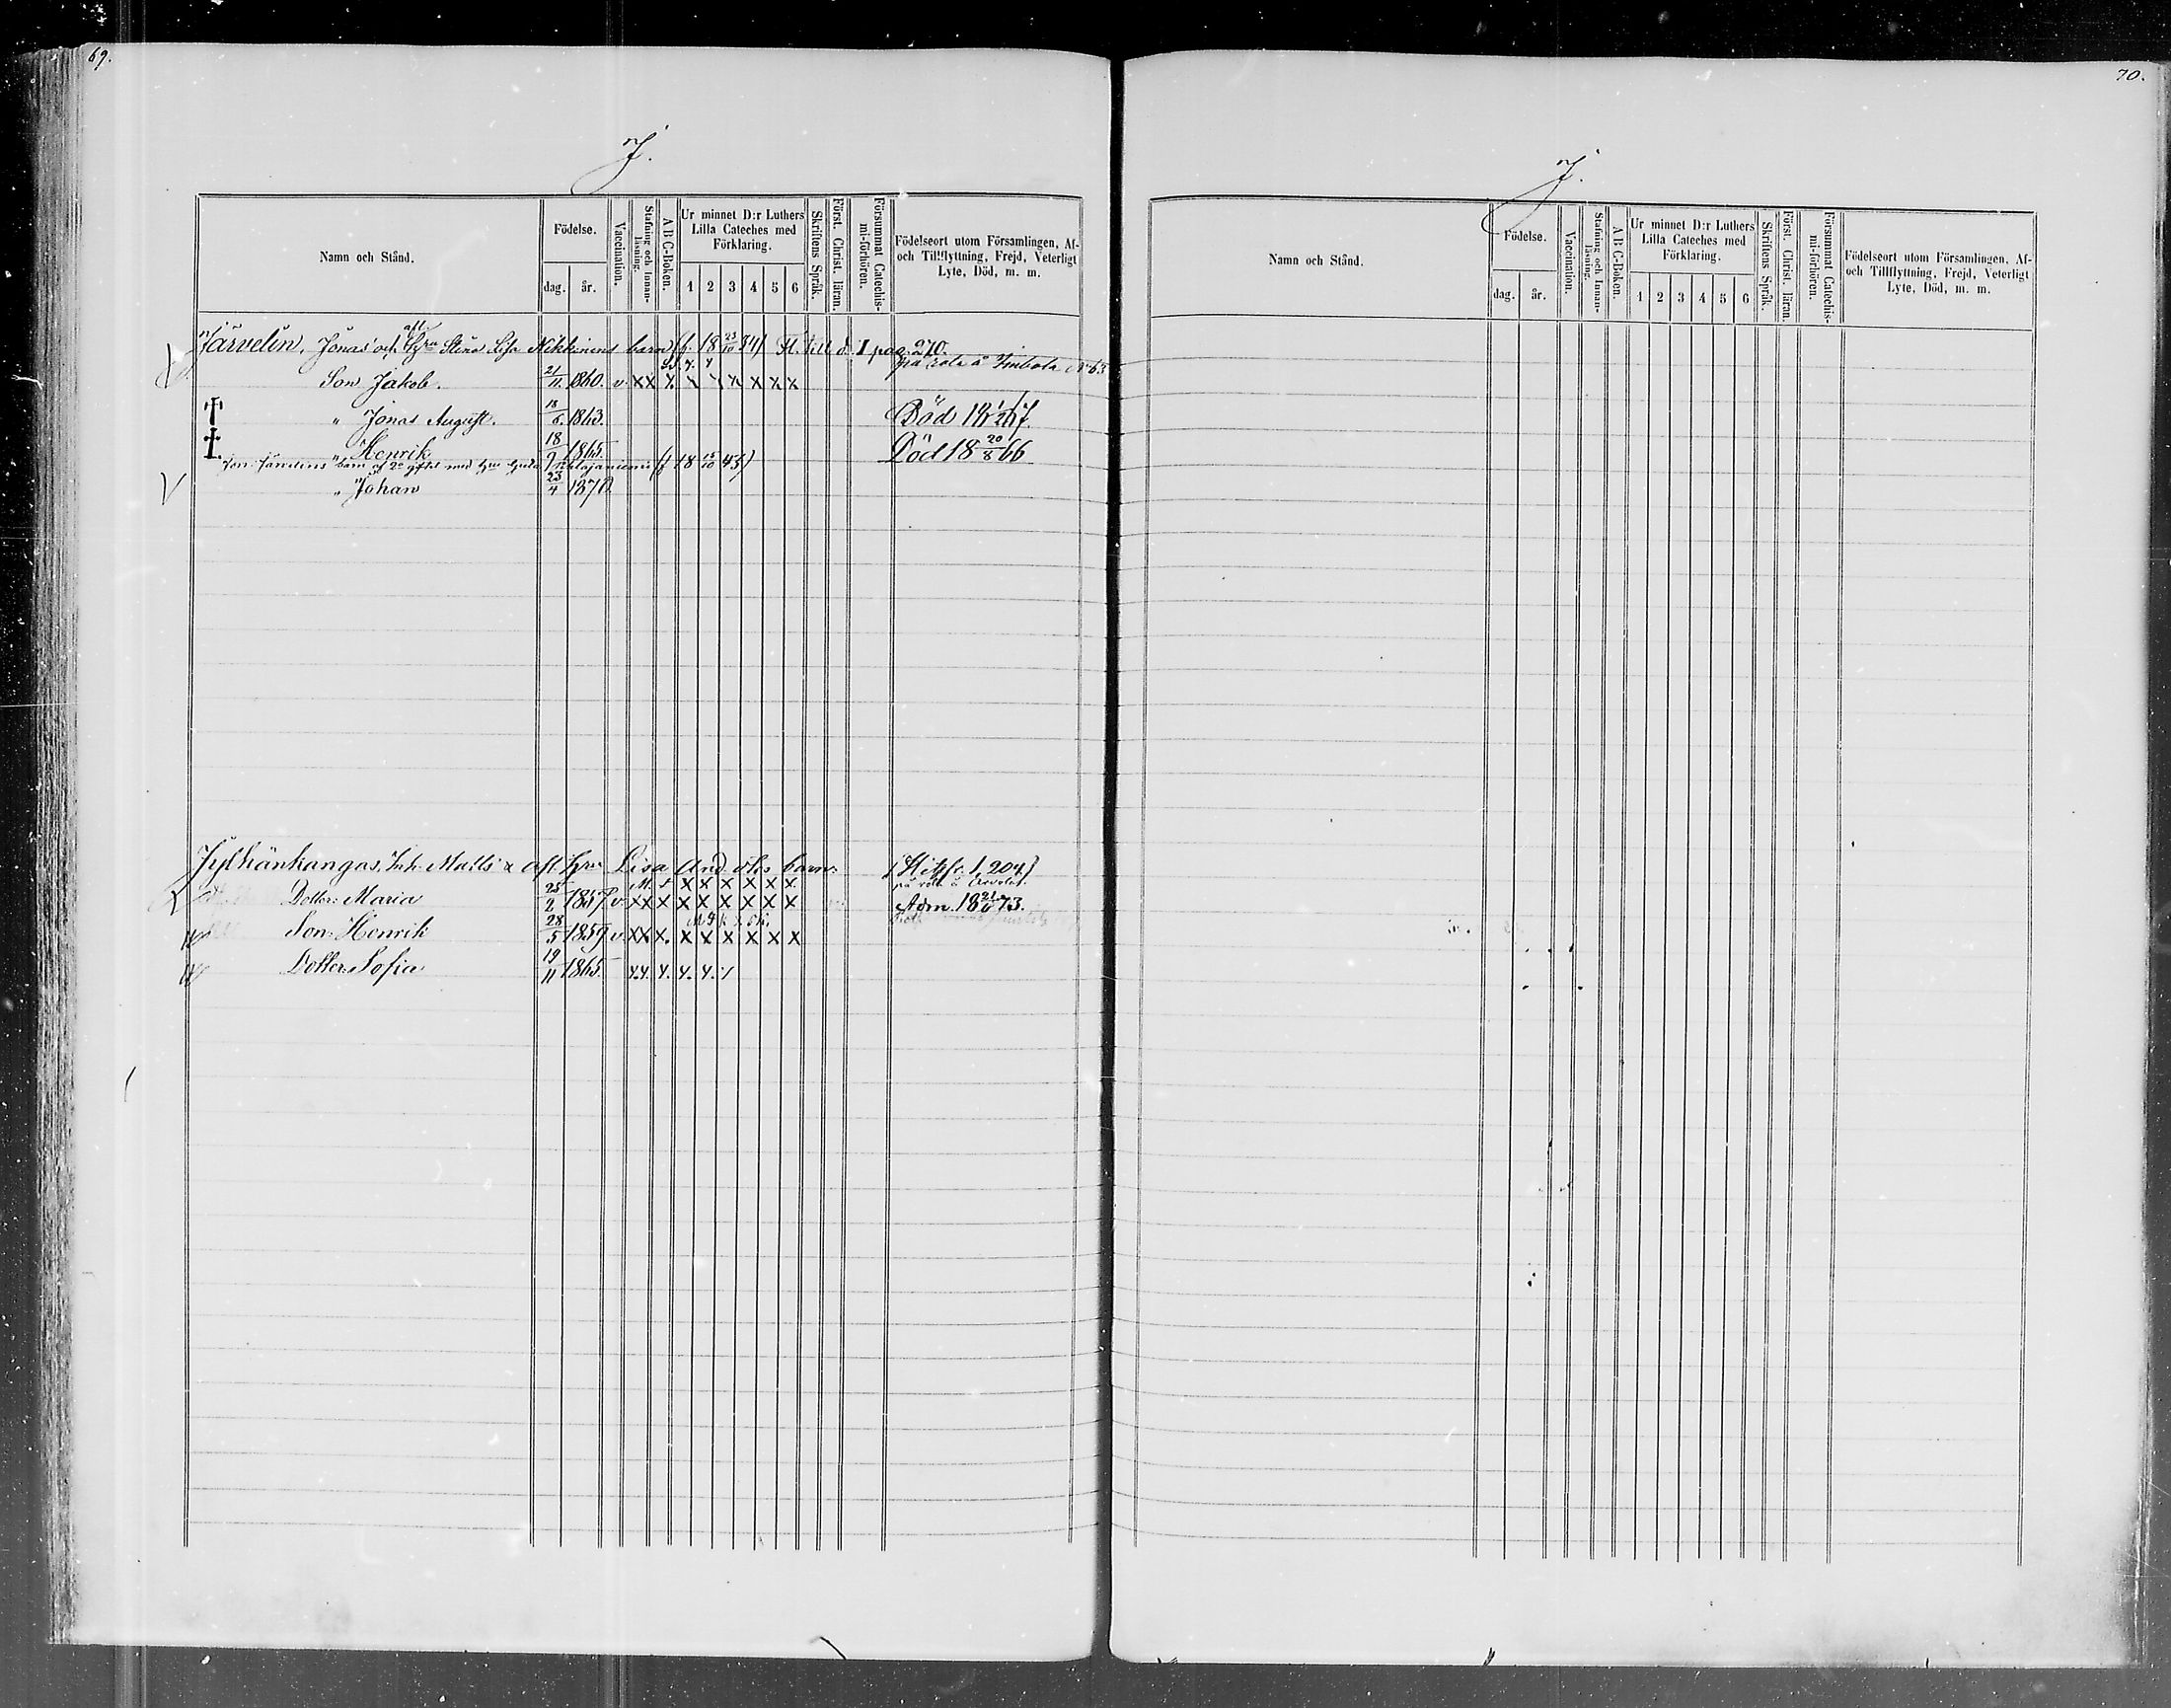 69.
J.
Namn och Stånd.
Födelse.
dag.
år.
Vaccination.
Stafning och Innan-
läsning.
A B C-Boken.
Ur minnet D:r Luthers
Lilla Cateches med
Förklaring.
1 2 3 4 5 6
Skriftens Språk.
Först. Christ. läran.
Försummat Catechis-
mi-förhören.
Födelseort utom Församlingen, Af-
och Tillflyttning, Frejd, Veterligt
Lyte, Död, m. m.
Järvelin, Jonas och afl. Hstru Stina Lisa Nikkinens barn (f. 18 23/10 34) Fl. till d. I pag. 270.
på rote å N:o 63
Son Jakob. 21/11 1860. v x x x x x x x x x
" Jonas August. 18/6 1863. Död 18
" Henrik 18/9 1865. Död 18 20/8 66
Jon. Järvelins barn af 2:a giftet med (f 18 15/10 43)
" Johan 23/4 1870
Jylhänkangas, Inh. Matts & afl. Hru Lisa And. d:rs barn. (Hitfl. fr. 1, 204)
M. x x x x x x x
på rote å
Dotter: Maria 25/2 1857 v x x x x x x x x x Adm. 18 21/6 73.
Son: Henrik 28/5 1859 v x x x. x x x x x x
Dotter: Sofia 19/11 1865.
70.
J.
Namn och Stånd.
Födelse.
dag.
år.
Vaccination.
Stafning och Innan-
läsning.
A B C-Boken.
Ur minnet D:r Luthers
Lilla Cateches med
Förklaring.
1 2 3 4 5 6
Skriftens Språk.
Först. Christ. läran.
Försummat Catechis-
mi-förhören.
Födelseort utom Församlingen, Af-
och Tillflyttning, Frejd, Veterligt
Lyte, Död, m. m.